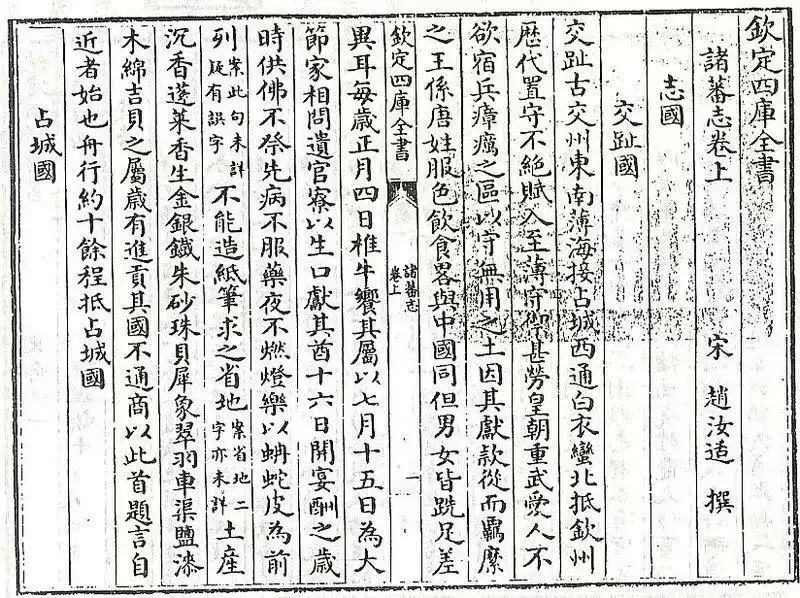 欽定四庫全書
諸蕃志卷上
宋 趙汝适 撰
志國
交趾國
交趾古交州東南薄海接占城西通白衣蠻北抵欽州
歴代置守不絶賦入至薄守禦甚勞皇朝重武愛人不
欲宿兵瘴癘之區以守無用之土因其獻款從而羈縻
之王係唐姓服色飲食畧與中國同但男女皆跣足差
欽定四庫全書
諸蕃志
卷上
一
異耳每歲正月四日椎牛饗其屬以七月十五日為大
節家相問遺官寮以生口獻其酋十六日開宴酬之歲
時供佛不祭先病不服藥夜不燃燈樂以蚺蛇皮為前
列案此句未詳疑有誤字不能造紙筆求之省地案省地二字亦未詳土産
沉香蓬萊香生金銀鐵朱砂珠貝犀象翠羽車渠鹽漆
木綿吉貝之屬歲有進貢其國不通商以此首題言自
近者始也舟行約十餘程抵占城國
占城國